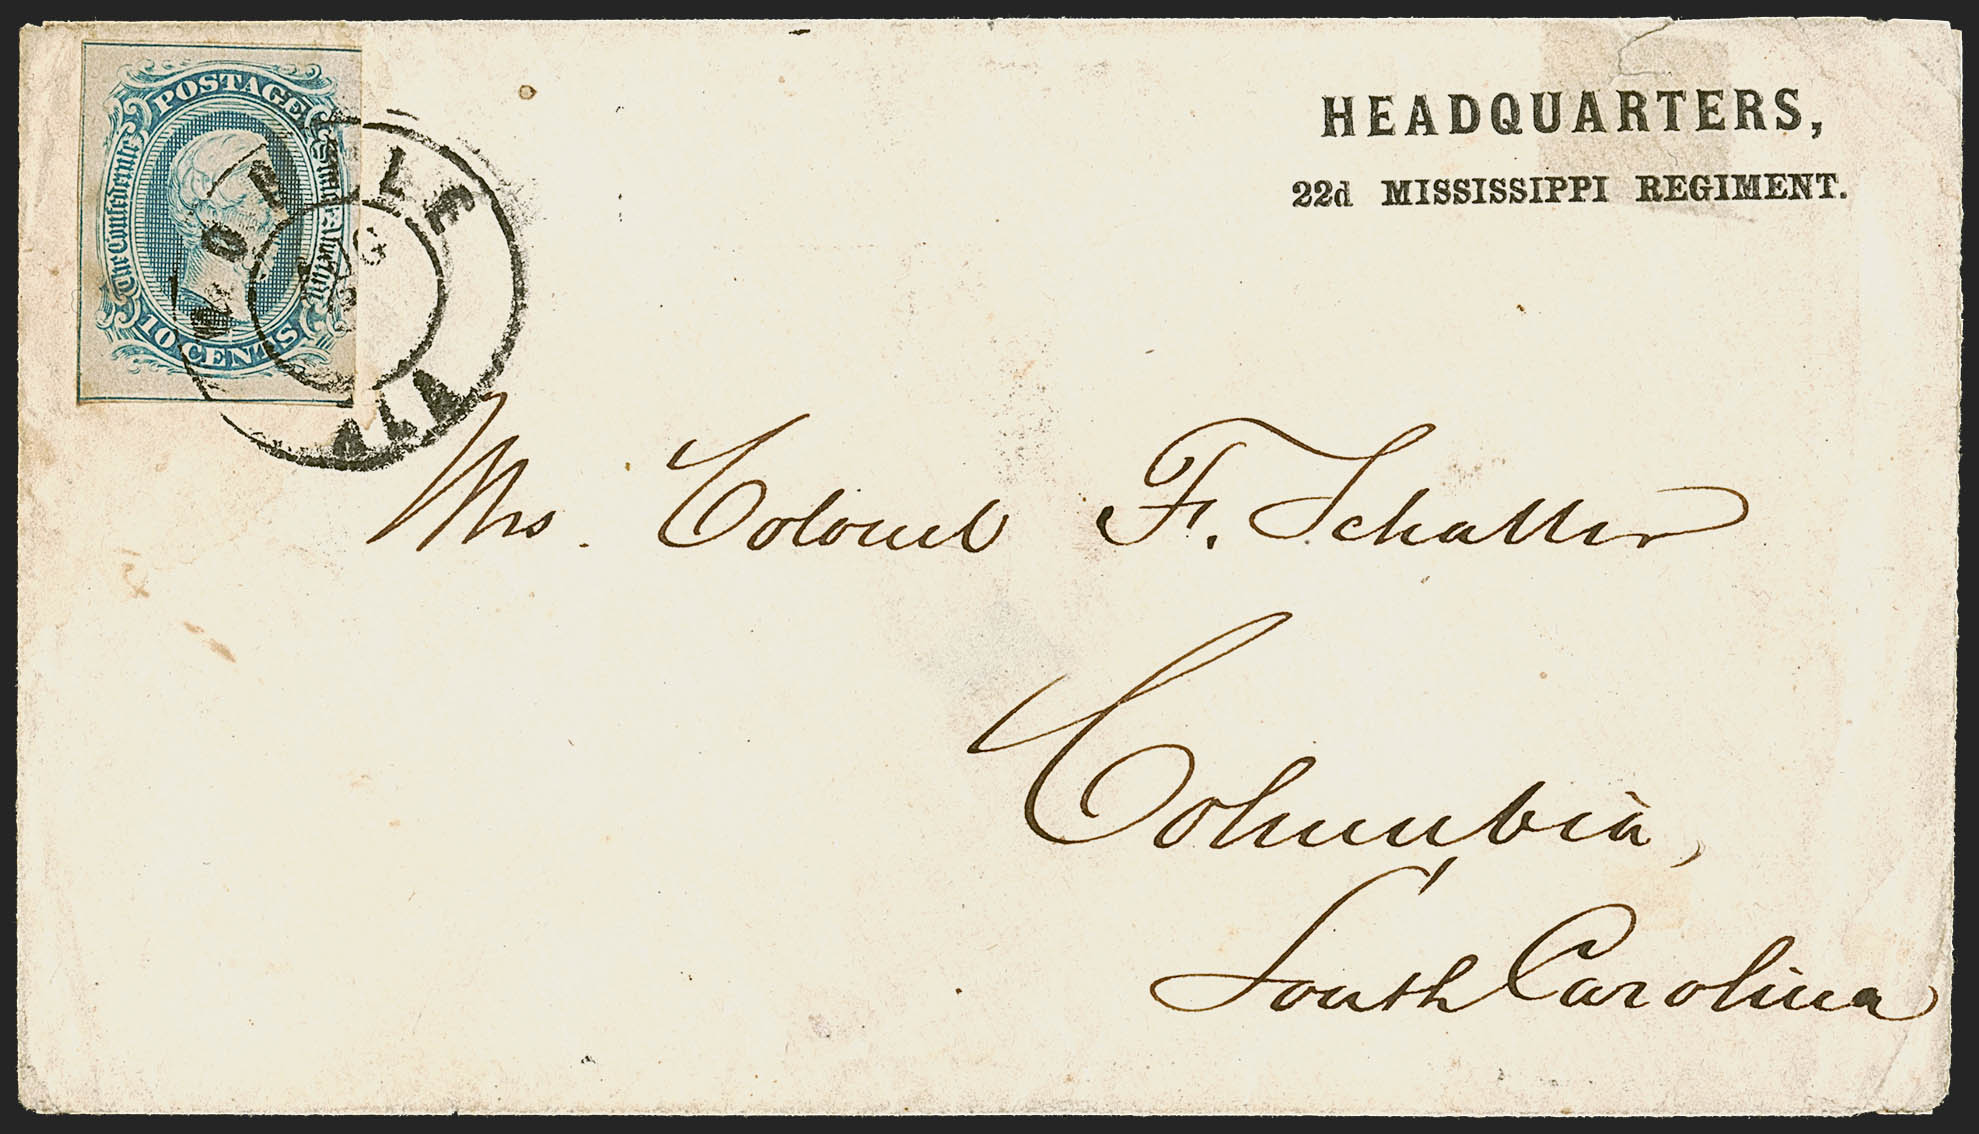 POSTAGE
The Confederate States of America
10 CENTS
MOBILE
AUG
ALA
HEADQUARTERS,
22d MISSISSIPPI REGIMENT.
Mrs. Colonel F. Schaller
Columbia,
South Carolina